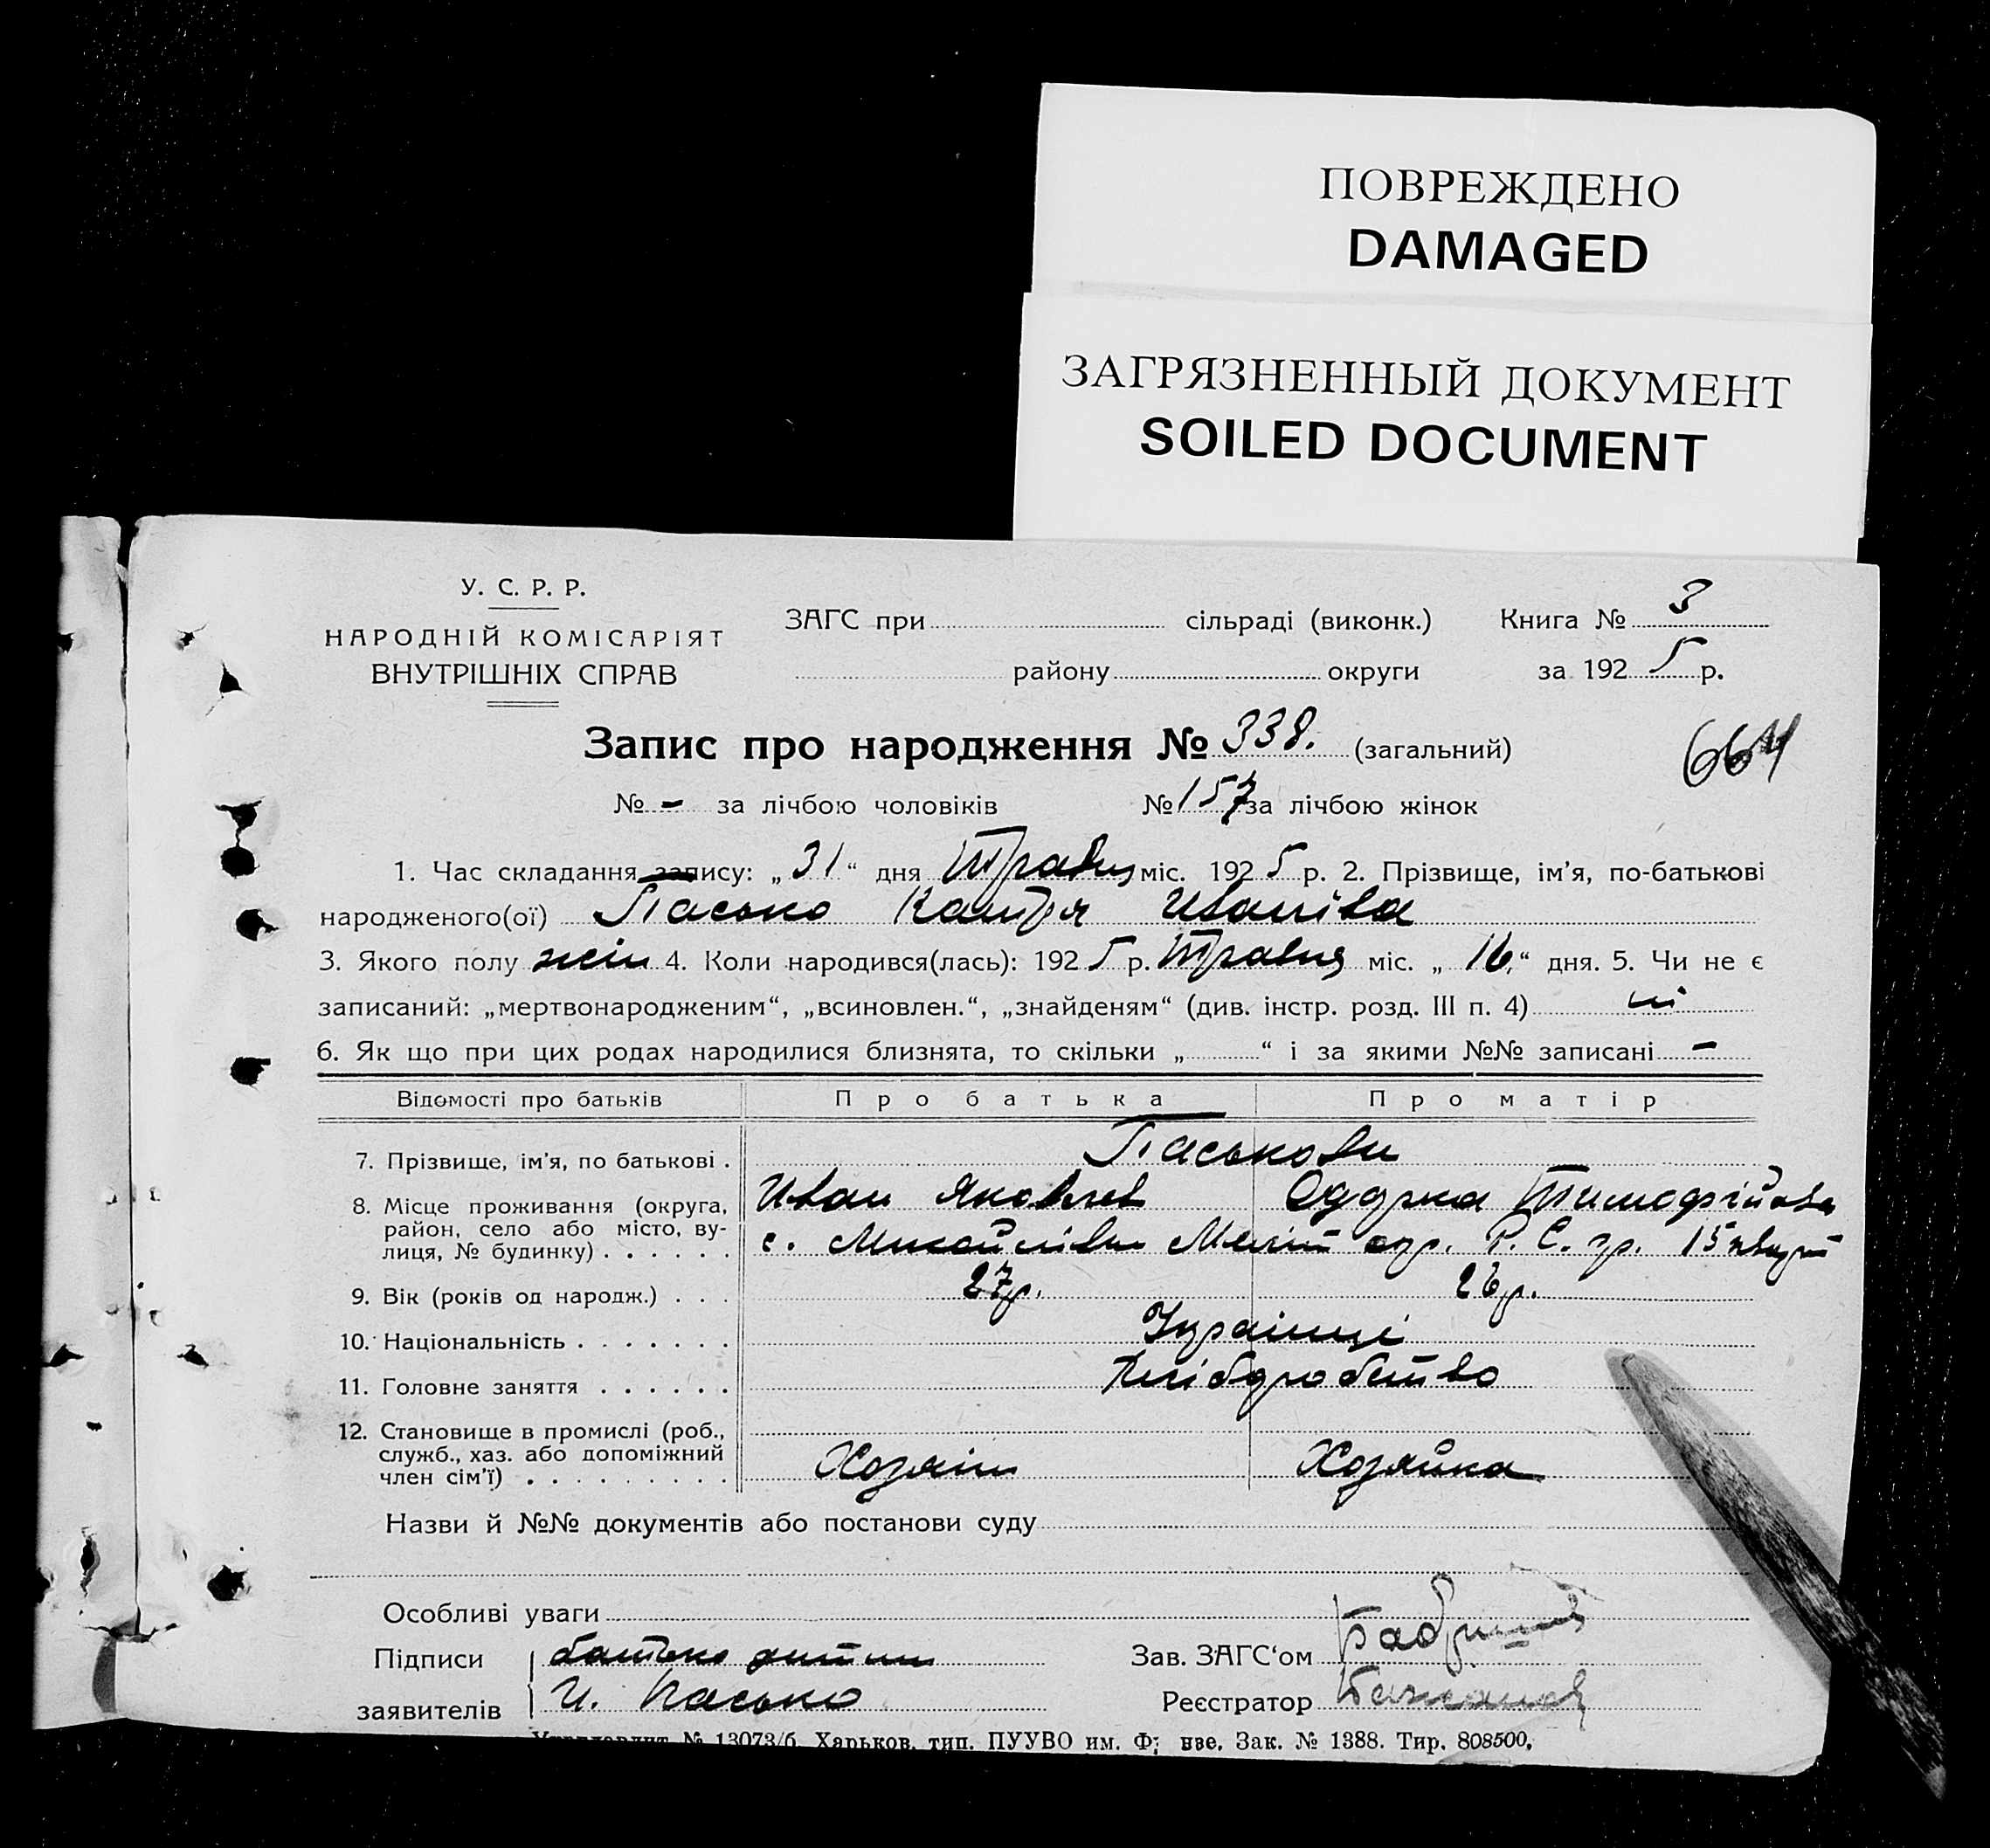 ПОВРЕЖДЕНО
DAMAGED
ЗАГРЯЗНЕННЫЙ ДОКУМЕНТ
SOILED DOCUMENT
У. С. Р. Р.
НАРОДНІЙ КОМІСАРІЯТ
ВНУТРІШНІХ СПРАВ
ЗАГС при сільраді (виконк.) Книга № 3
району округи за 1925 р.
Запис про народження № 338. (загальний)
664
№ - за лічбою чоловіків № 157 за лічбою жінок
1. Час складання запису: „31“ дня Травня міс. 1925 р. 2. Прізвище, ім’я, по-батькові
народженого(ої) Пасько Катря Иванівна
3. Якого полу жін 4. Коли народився(лась): 1925 р. Травня міс. „16“ дня. 5. Чи не є
записаний: „мертвонародженим“, „всиновлен.“, „знайденям“ (див. інстр. розд. III п. 4) ні
6. Як що при цих родах народилися близнята, то скільки „ “ і за якими №№ записані -
Відомості про батьків Про батька Про матір
7. Прізвище, ім’я, по батькові . Паськови
8. Місце проживання (округа, Иван Яковлев Одарка Тимофійова
район, село або місто, ву-
лиця, № будинку) . . . . . . с. Михайлівки Меліт окр. Р. С. 15
9. Вік (років од народж.) . . . 27 р. 26 р.
10. Національність . . . . . . . Українці
11. Головне заняття . . . . . . Хліборобство
12. Становище в промислі (роб.,
служб., хаз. або допоміжний
член сім’ї) . . . . . . . . . Хозяїн Хозяйка
Назви й №№ документів або постанови суду
Особливі уваги
Підписи батько дитини Зав. ЗАГС‘ом
заявителів И. Пасько Реєстратор
№ 13073/б. Харьков. тип. ПУУВО им. Зак. № 1388. Тир. 808500.